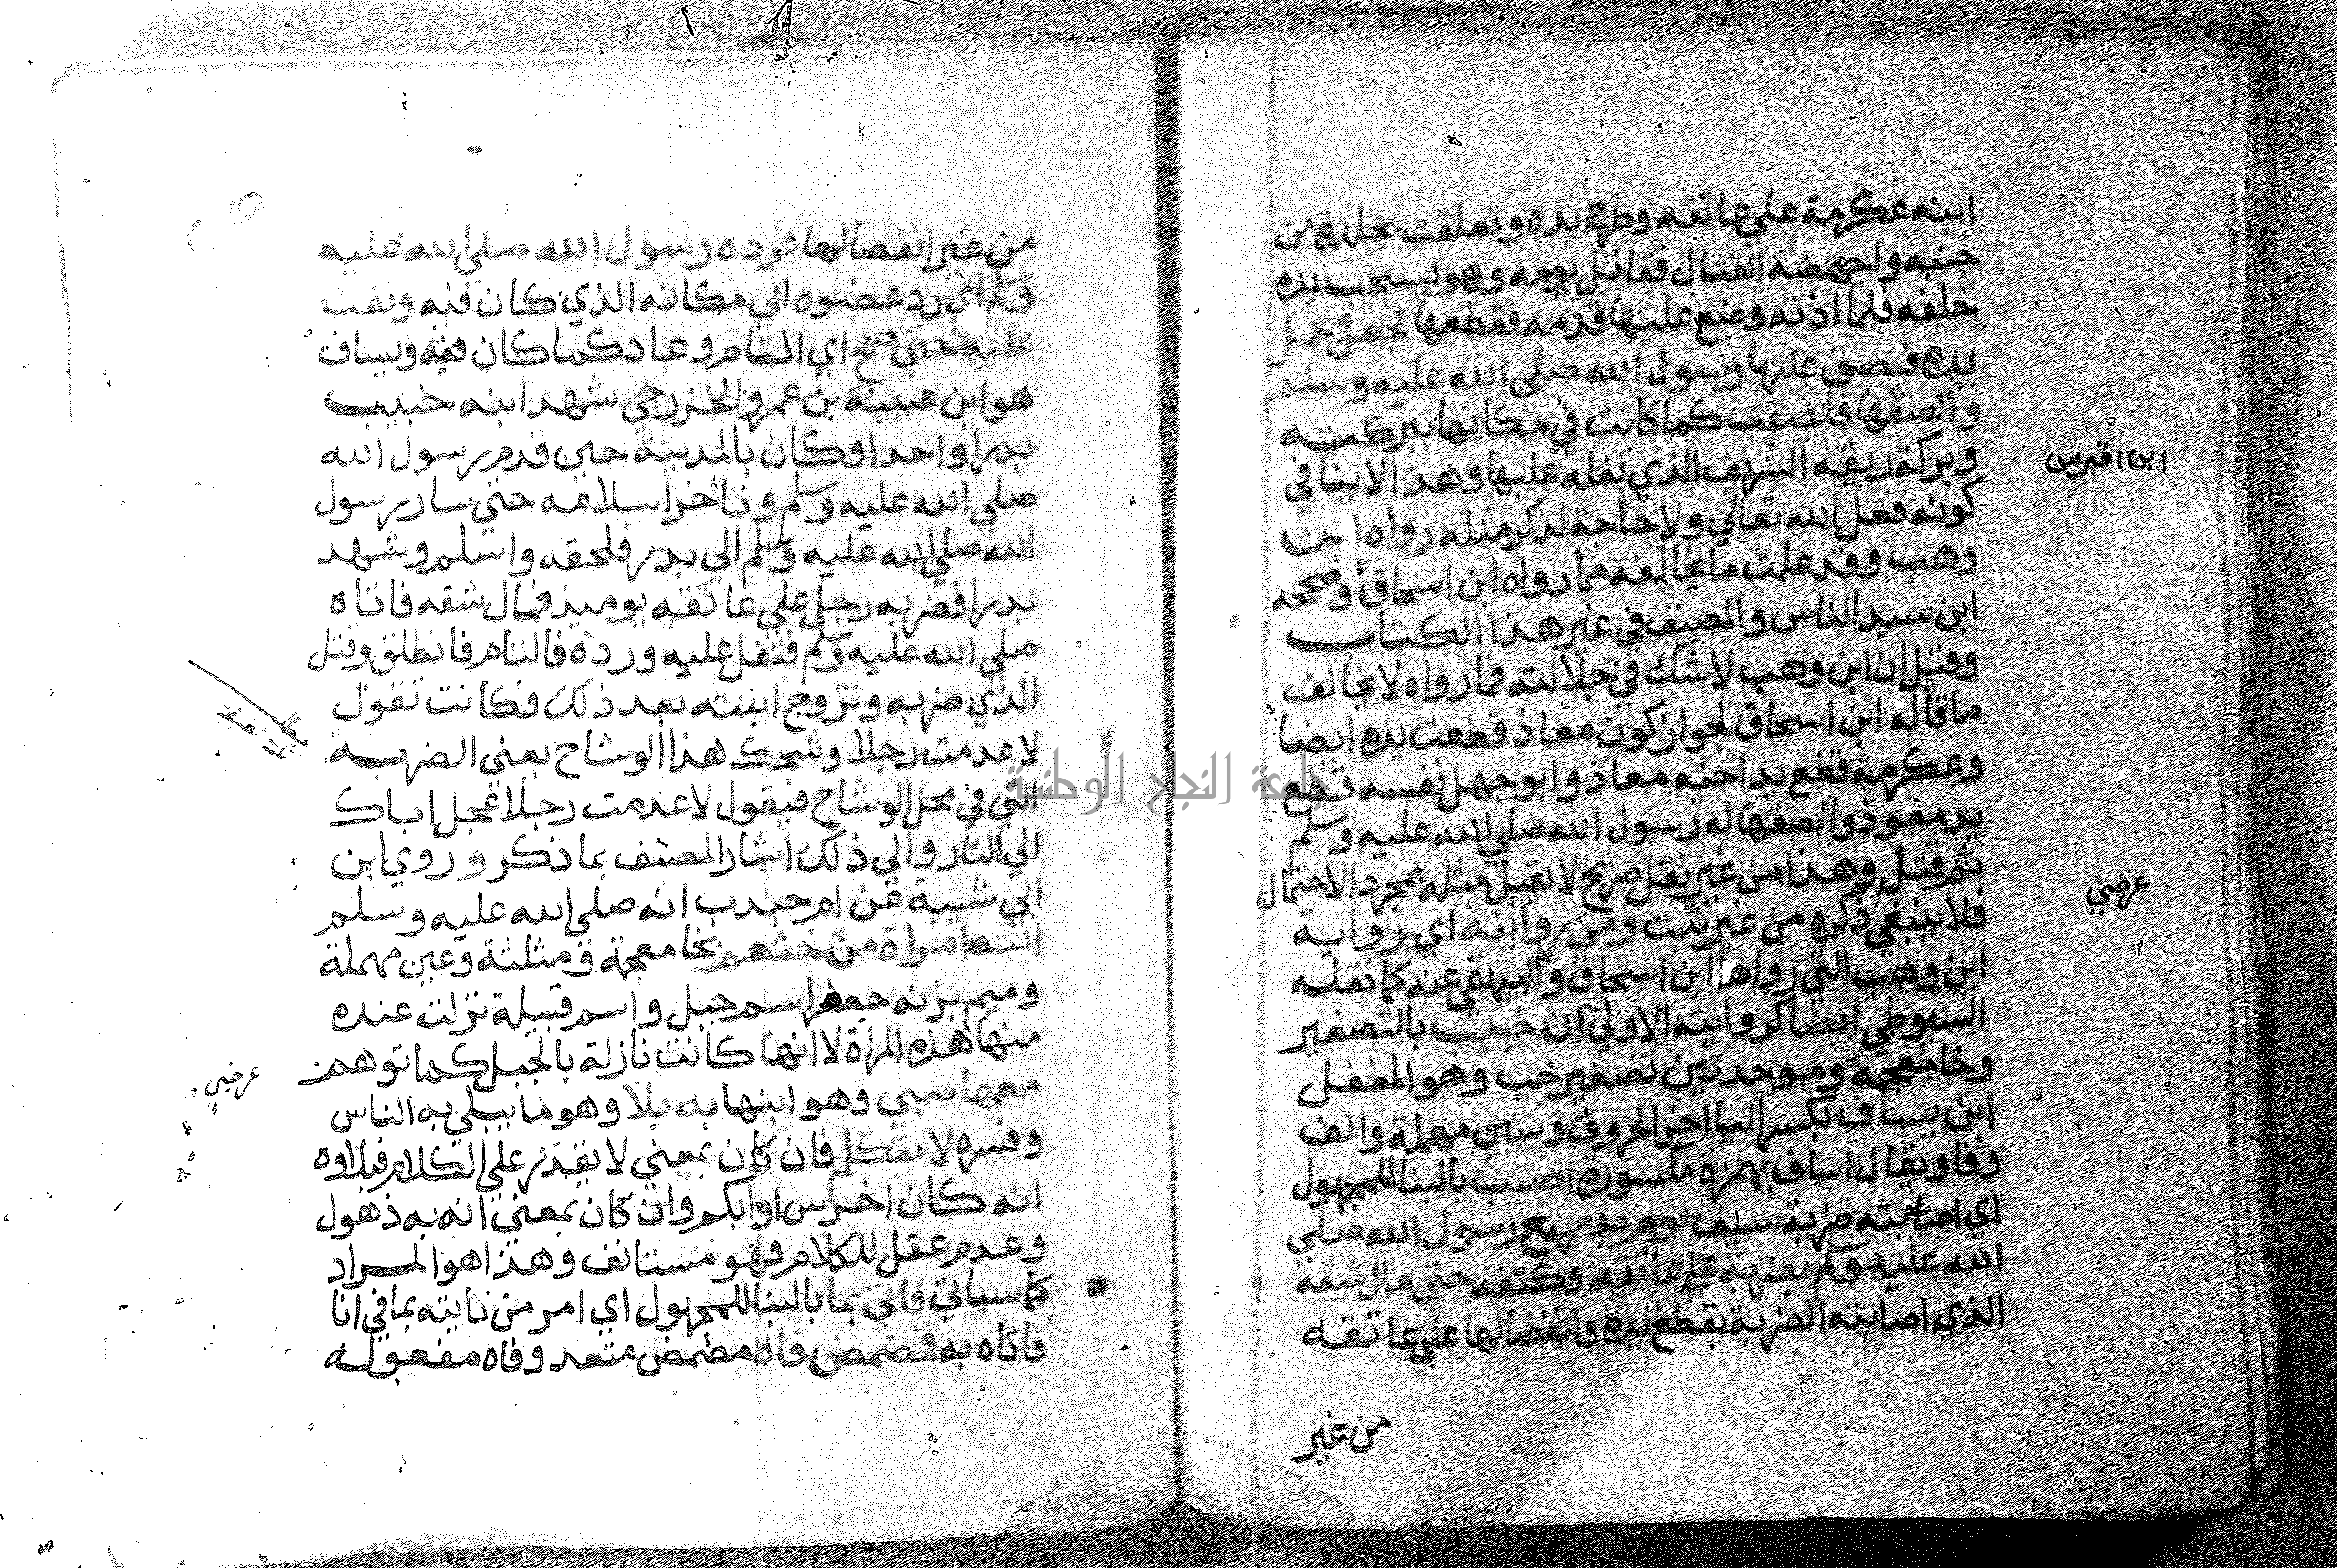 ابنه عكرمة علي عاتقه وطرح يده وتعلقت بجلدة من
جنبه واجهضه القتال فقاتل يومه وهو يسحب يده
خلفه فلما اذته وضع عليها قدمه فقطعها فجعل يحمل
يده فبصق عليها رسول الله صلي الله عليه وسلم
والصقها فلصقت كما كانت في مكانها ببركته
وبركة ريقه الشريف الذي تفله عليها وهذا لاينافي
كونه فعل الله تعالي ولا حاجة لذكر مثله رواه ابن
وهب وقد علمت ما يخالفه مما رواه ابن اسحاق وصححه
ابن سيد الناس والمصنف في غير هذا الكتاب
وقيل ان ابن وهب لا شك في جلالته فما رواه لا يخالف
ما قاله ابن اسحاق لجواز كون معاذ قطعت يده ايضا
وعكرمة قطع يد اخيه معاذ وابو جهل نفسه قطع
يد معوذ والصقها له رسول الله صلي الله عليه وسلم
ثم قتل وهذا من غير نقل صريح لا يقبل مثله بمجرد الاحتمال
فلا ينبغي ذكره من غير تثبت ومن روايته اي رواية
ابن وهب التي رواها ابن اسحاق والبيهقي عنه كما نقله
السيوطي ايضا كروايته الاولي ان خبيب بالتصغير
وخا معجمة وموحدتين تصغير خب وهو المغفل
ابن يساف بكسر اليا اخر الحروف وسين مهملة والف
وفا ويقال اساف بهمزة مكسورة اصيب بالبنا للمجهول
اي اصابته ضربة سيف يوم بدر مع رسول الله صلي
الله عليه وسلم بضربة علي عاتقه وكتفه حتي مال شقه
الذي اصابته الضربة بقطع يده وانفصالها عن عاتقه
من غير
ابن اقبرس
عرضي
من غير انفصالها فرده رسول الله صلي الله عليه
وسلم اي رد عضوه الي مكانه الذي كان فيه ونفث
عليه حتي صح اي التام وعاد كما كان فيه ويساف
هو ابن عيينة بن عمرو الخزرجي شهد ابنه خبيب
بدرا واحدا وكان بالمدينة حين قدم رسول الله
صلي الله عليه وسلم وتاخر اسلامه حتي سار رسول
الله صلي الله عليه وسلم الي بدر فلحقه واسلم وشهد
بدرا فضربه رجل علي عاتقه يوميذ فمال شقه فاتاه
صلي الله عليه وسلم فتفل عليه ورده فالتام فانطلق وقتل
الذي ضربه وتزوج ابنته بعد ذلك فكانت تقول
لا عدمت رجلا وشحك هذا الوشاح يعني الضربة
التي في محل الوشاح فيقول لا عدمت رجلا عجل اباك
الي النار والي ذلك اشار المصنف بما ذكر وروي ابن
ابي شيبة عن ام جندب انه صلي الله عليه وسلم
اتته امراة من خثعم بخا معجمة ومثلثة وعين مهملة
وميم بزنه جعفر اسم جبل واسم قبيلة نزلت عنده
منها هذه المراة لا انها كانت نازلة بالجبل كما توهم
معها صبي وهو ابنها به بلا وهو ما يبلي به الناس
وفسره لا يتكلم فان كان بمعني لا يقدر علي الكلام فبلاوه
انه كان اخرس او ابكم وان كان بمعني انه به ذهول
وعدم عقل للكلام فهو مستانف وهذا هو المراد
كما سياتي فاتي بما بالبنا للمجهول اي امر من ناتيه بما في انا
فاتاه به فمضمض فاه مضمض متعد وفاه مفعوله
عرضي